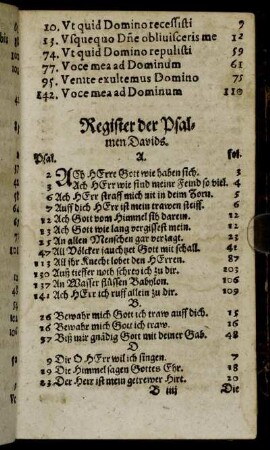 10. Vt quid Domino recessisti 7
13. Vsquequo Dñe obliuisceris me 12
74. Vt quid Domino repulisti 59
77. Voce mea ad Dominum 61
95. Venite exultemus Domino 75
142. Voce mea ad Dominum 110
Register der Psal-
men Davids.
Psal. A. fol.
2 ACh HErre Gott wie haben sich. 3
3 Ach HErr wie sind meine Feind so viel. 4
6 Ach HErr straff mich nit in dein Zorn. 5
7 Auff dich HErr ist mein trawen steiff. 6
12 Ach Gott vom Himmel sih darein. 12
13 Ach Gott wie lang vergissest mein. 12
25 An allen Menschen gar verzagt. 23
47 All Völcker jauchzet Gott mit schall. 41
113 All ihr Knecht lobet den HErren. 87
130 Auß tieffer noth schrey ich zu dir. 103
137 An Wasser flüssen Babylon. 106
141 Ach HErr ich ruff allein zu dir. 109
B.
16 Bewahr mich Gott ich traw auff dich. 15
16 Bewahr mich Gott ich traw. 16
57 Biß mir gnädig Gott mit deiner Gab. 48
D
9 Dir O HErr wil ich singen. 7
19 Die Himmel sagen Gottes Ehr. 18
23 Der Herr ist mein getrewer Hirt. 20
B iiij Die